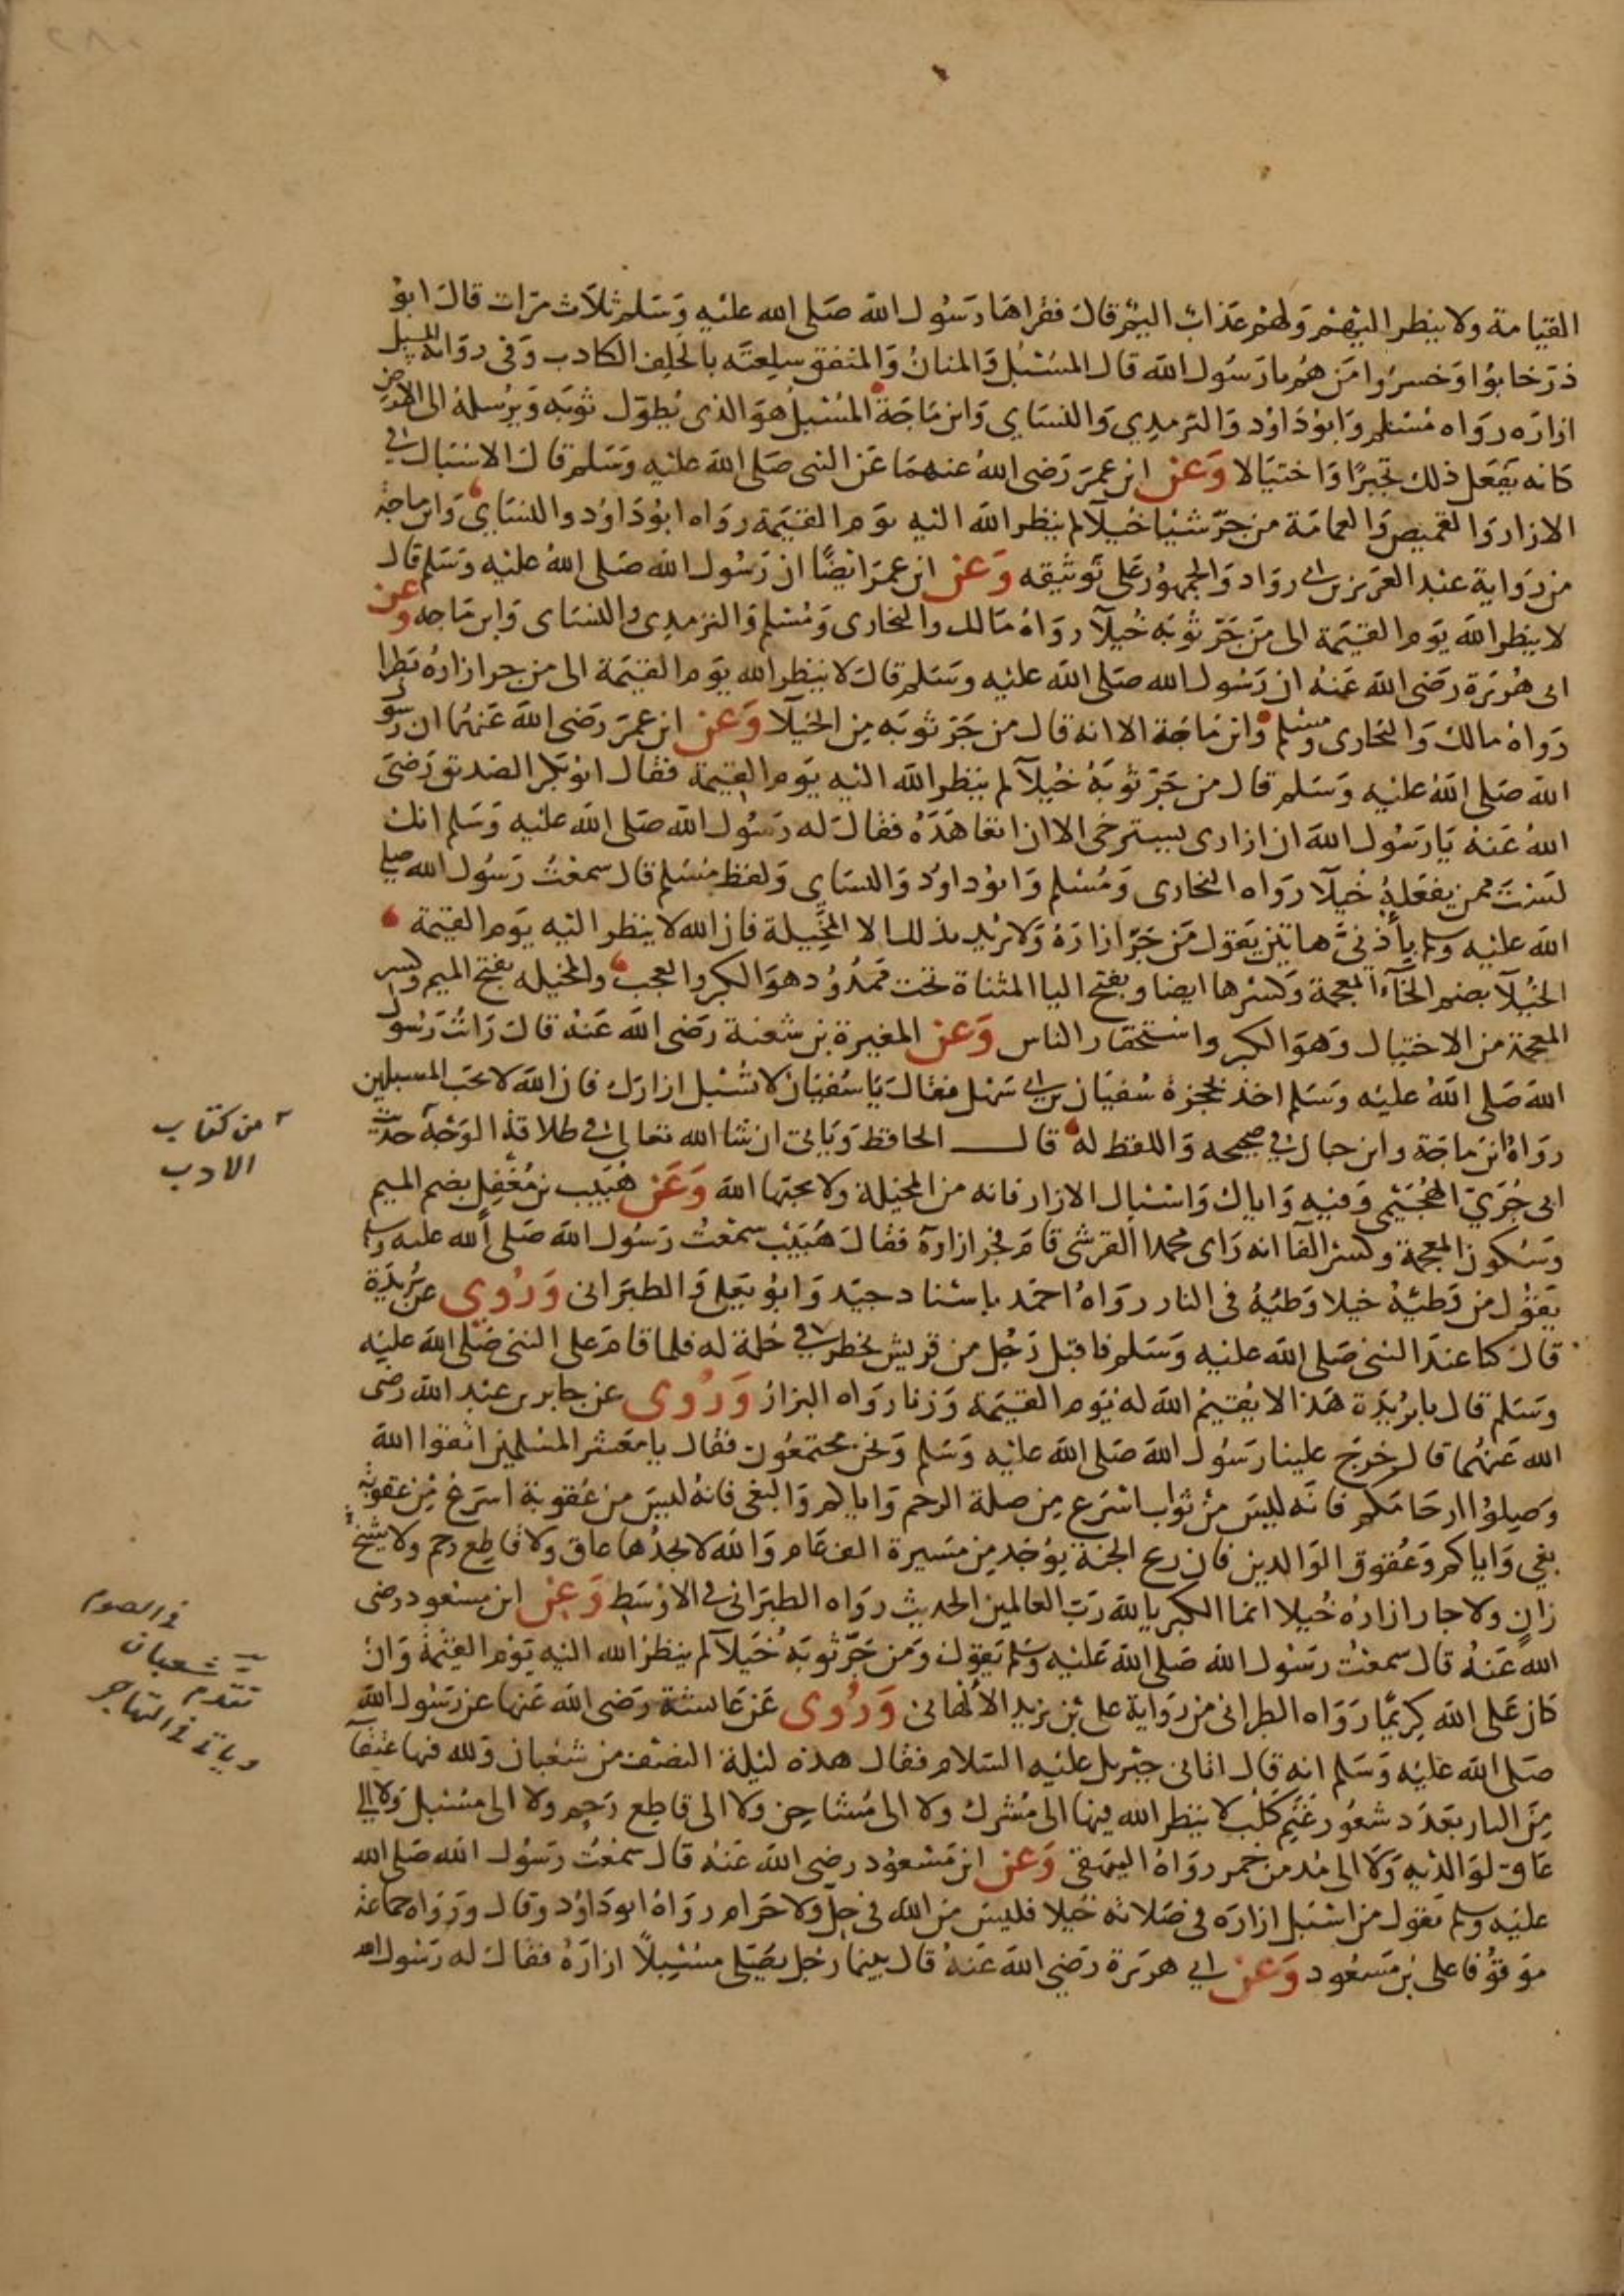 القيامة ولا ينظر اليهم ولهم عذاب اليم قال فقراها رسول الله صلى الله عليه وسلم ثلاث مرات قال ابو
ذر خابوا وخسروا من هم يا رسول الله قال المسبل والمنان والمنفق سلعته بالحلف الكاذب وفي رواية المسبل
ازاره رواه مسلم وابو داود والترمذي والنساي وابن ماجة المسبل هو الذي يطول ثوبه ويرسله الى الارض
كانه يفعل ذلك تجبرا واختيالا وعن ابن عمر رضي الله عنهما عن النبي صلى الله عليه وسلم قال الاسبال في
الازار والقميص والعمامة من جر شيا خيلا لم ينظر الله اليه يوم القيمة رواه ابو داود والنساي وابن ماجة
من رواية عبد العزيز بن ابي رواد والجمهور على توثيقه وعن ابن عمر ايضا ان رسول الله صلى الله عليه وسلم قال
لا ينظر الله يوم القيمة الى من جر ثوبه خيلا رواه مالك والبخاري ومسلم والترمذي والنساي وابن ماجه وعن
ابي هريرة رضي الله عنه ان رسول الله صلى الله عليه وسلم قال لا ينظر الله يوم القيمة الى من جر ازاره بطرا
رواه مالك والبخاري ومسلم وابن ماجة الا انه قال من جر ثوبه من الخيلا وعن ابن عمر رضي الله عنهما ان رسول
الله صلى الله عليه وسلم قال من جر ثوبه خيلا لم ينظر الله اليه يوم القيمة فقال ابو بكر الصديق رضي
الله عنه يا رسول الله ان ازاري يسترخي الا ان اتعاهده فقال له رسول الله صلى الله عليه وسلم انك
لست ممن يفعله خيلا رواه البخاري ومسلم وابو داود والنساي ولفظ مسلم قال سمعت رسول الله صلى
الله عليه وسلم بأذني هاتين يقول من جر ازاره لا يريد بذلك الا المخيلة فان الله لا ينظر اليه يوم القيمة
الخيلا بضم الخاء المعجمة وكسرها ايضا وبفتح اليا المثناة تحت ممدود هو الكبر والعجب والمخيله بفتح الميم وكسر
المعجمة من الاختيال وهو الكبر واستحقار الناس وعن المغيرة بن شعبة رضي الله عنه قال رايت رسول
الله صلى الله عليه وسلم اخذ بحجزة سفيان بن ابي سهل فقال يا سفيان لا تسبل ازارك فان الله لا يحب المسبلين
رواه ابن ماجة وابن حبان في صحيحه واللفظ له قال الحافظ وياتي ان شا الله تعالى في طلاقة الوجه حديث
ابي جري الهجيمي وفيه واياك واسبال الازار فانه من المخيلة ولا يحبها الله وعن هبيب بن مغفل بضم الميم
وسكون المعجمة وكسر الفا انه راى محمدا القرشي قام فجر ازاره فقال هبيب سمعت رسول الله صلى الله عليه وسلم
يقول من وطئه خيلا وطئه في النار رواه احمد باسناد جيد وابو يعلي والطبراني وروي عن بريدة
قال كنا عند النبي صلى الله عليه وسلم فاقبل رجل من قريش يخطر في حلة له فلما قام على النبي صلى الله عليه
وسلم قال يا بريدة هذا لا يقيم الله له يوم القيمة وزنا رواه البزار وروي عن جابر بن عبد الله رضي
الله عنهما قال خرج علينا رسول الله صلى الله عليه وسلم ونحن مجتمعون فقال يا معشر المسلمين اتقوا الله
وصيلوا ارحامكم فانه ليس من ثواب اسرع من صلة الرحم واياكم والبغي فانه ليس من عقوبة اسرع من عقوبة
بغي واياكم وعقوق الوالدين فان ريح الجنة يوجد من مسيرة الف عام والله لا يجدها عاق ولا قاطع رحم ولا شيخ
زان ولا جار ازاره خيلا انما الكبريا لله رب العالمين الحديث رواه الطبراني في الاوسط وعن ابن مسعود رضي
الله عنه قال سمعت رسول الله صلى الله عليه وسلم يقول ومن جر ثوبه خيلا لم ينظر الله اليه يوم القيمة وان
كان على الله كريما رواه الطبراني من رواية علي بن يزيد الالهاني وروي عن عائشة رضي الله عنها عن رسول الله
صلى الله عليه وسلم انه قال اتاني جبريل عليه السلام فقال هذه ليلة النصف من شعبان ولله فيها عتقا
من النار بعدد شعور غنم كلب لا ينظر الله فيها الى مشرك ولا الى مشاحن ولا الى قاطع رحم ولا الى مسبل ولا الي
عاق لوالديه ولا الى مدمن خمر رواه البيهقي وعن ابن مسعود رضي الله عنه قال سمعت رسول الله صلى الله
عليه وسلم يقول من اسبل ازاره في صلاته خيلا فليس من الله في حل ولا حرام رواه ابو داود وقال ورواه جماعة
موقوفا على بن مسعود وعن ابي هريرة رضي الله عنه قال بينما رجل يصلي مسبلا ازاره فقال له رسول الله
من كتاب
الادب
في الصوم
شعبان
تقدم
وياتي في التهاجر